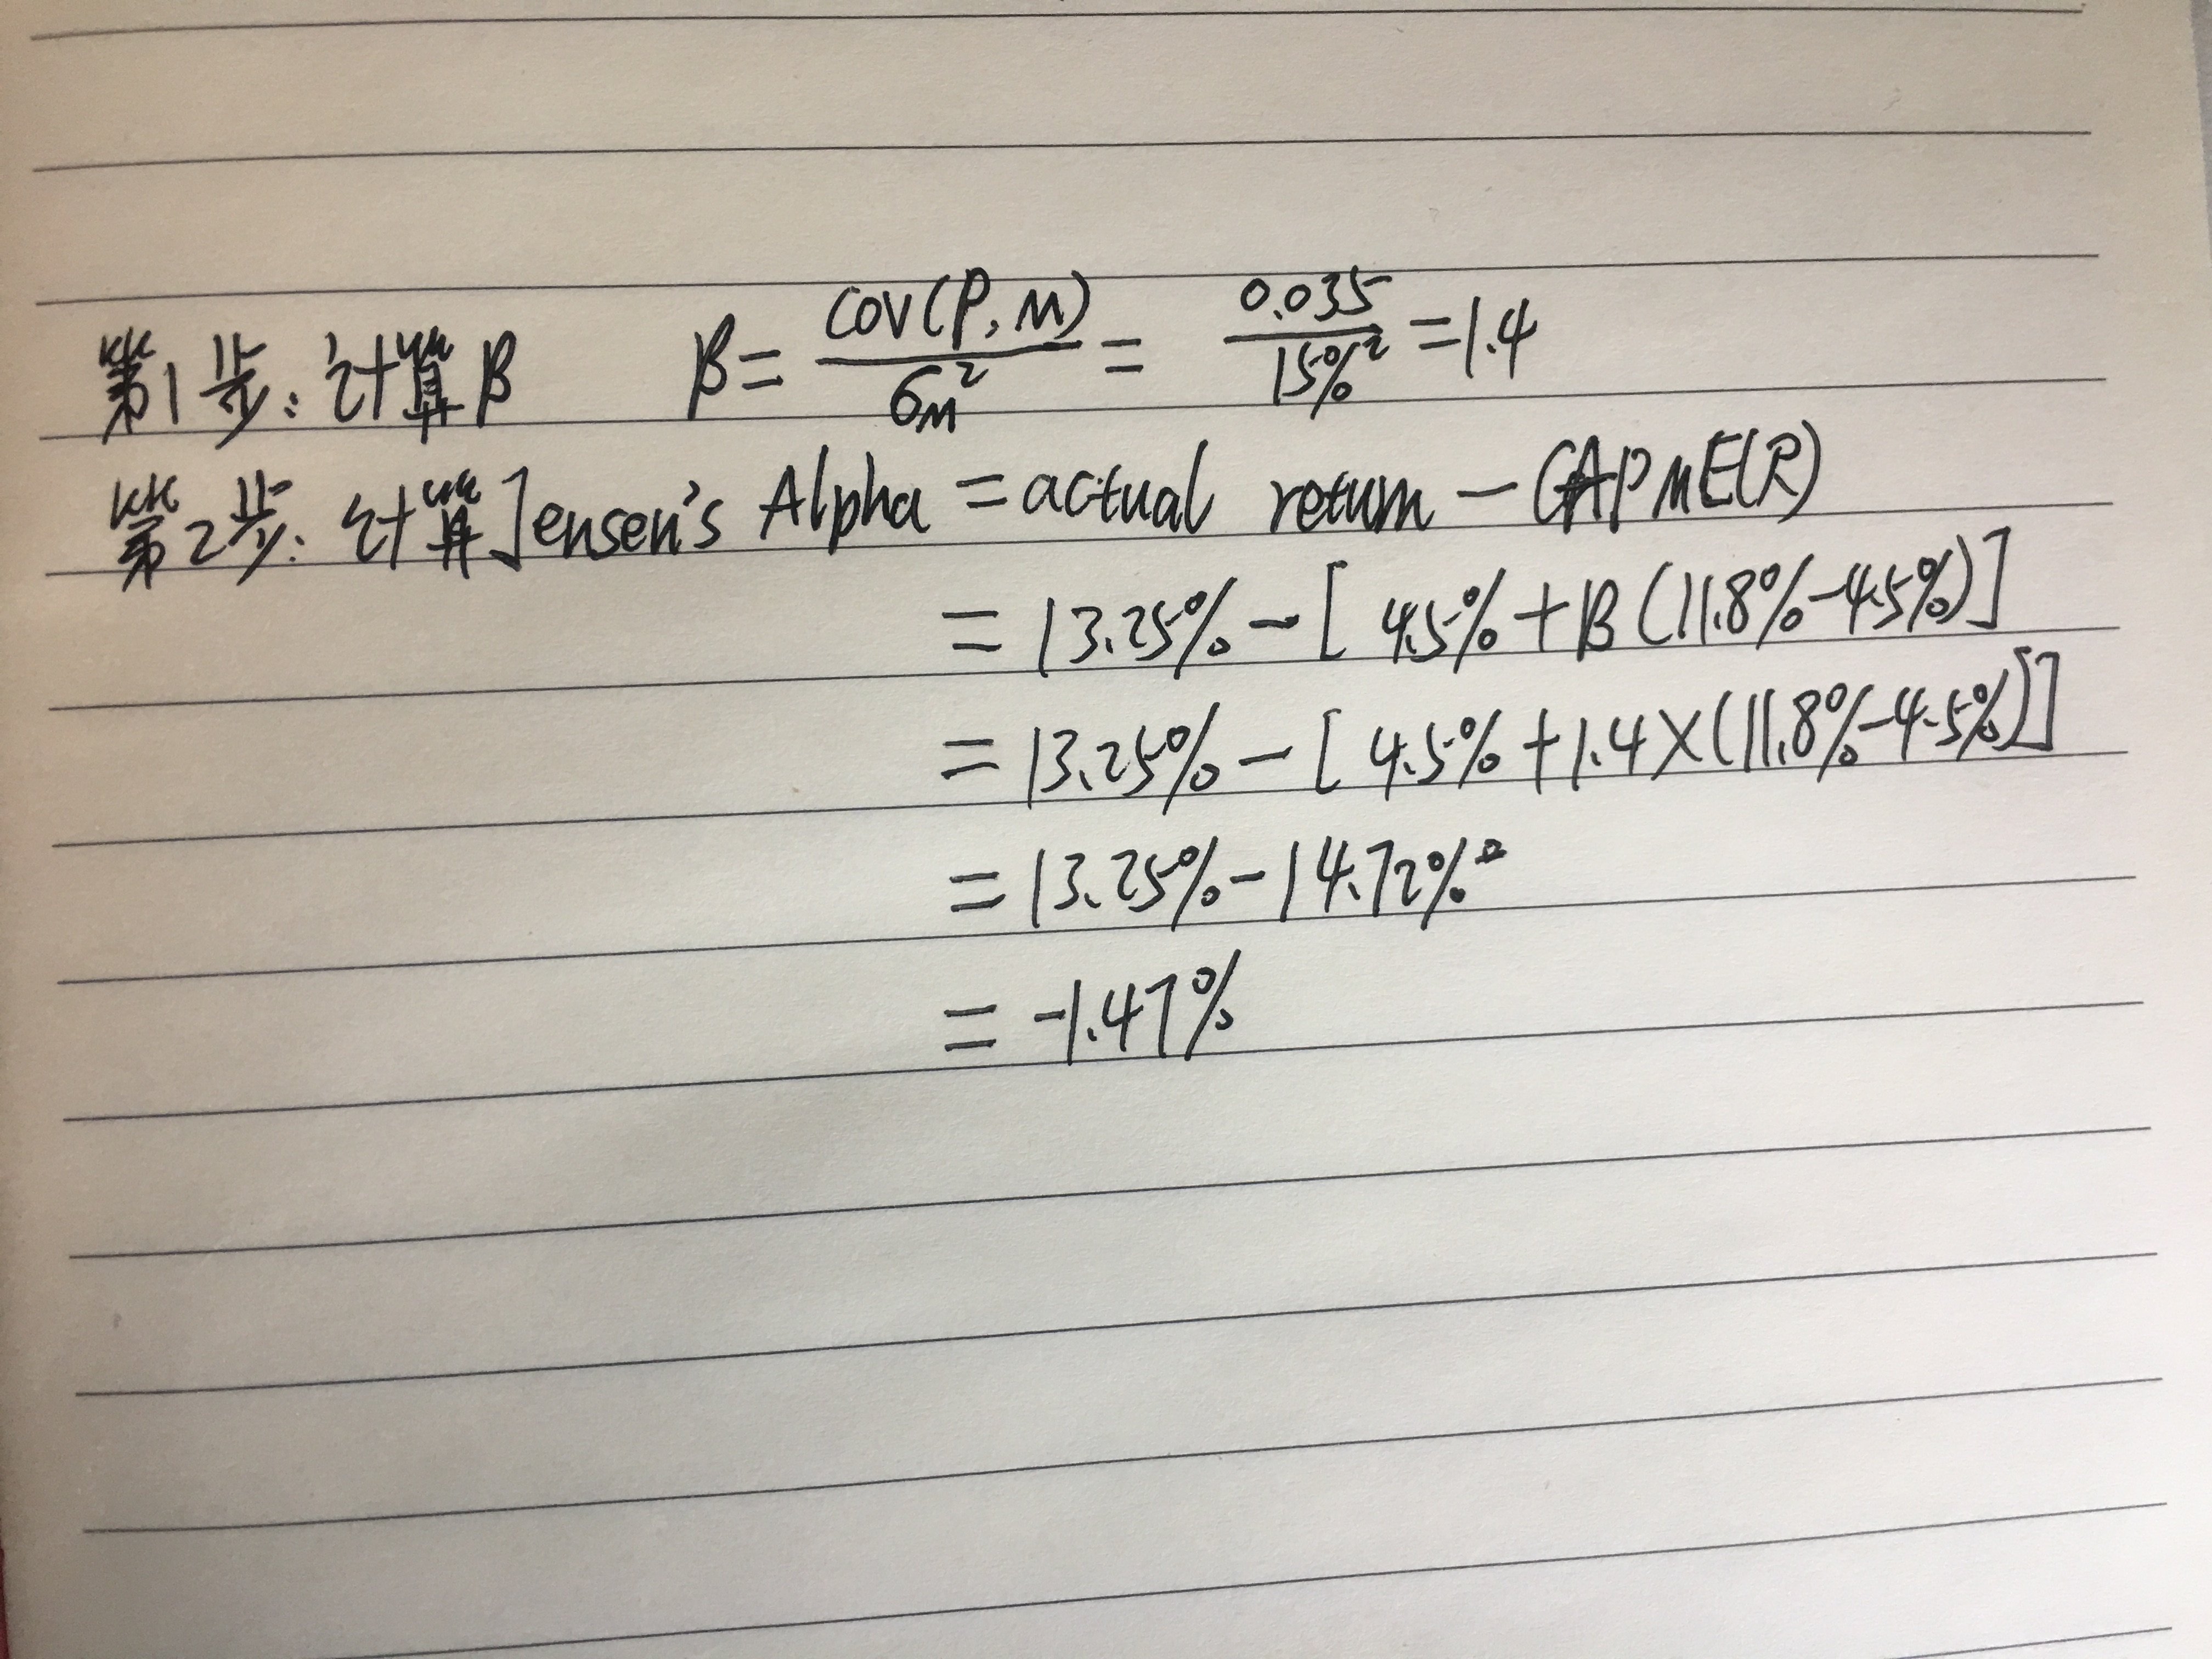 第1步: 计算β β = cov(P, M) / σM² = 0.035 / 15%² = 1.4
第2步: 计算Jensen's Alpha = actual return - CAPM E(R)
= 13.25% - [ 4.5% + β (11.8% - 4.5%)]
= 13.25% - [ 4.5% + 1.4 × (11.8% - 4.5%)]
= 13.25% - 14.72%
= -1.47%